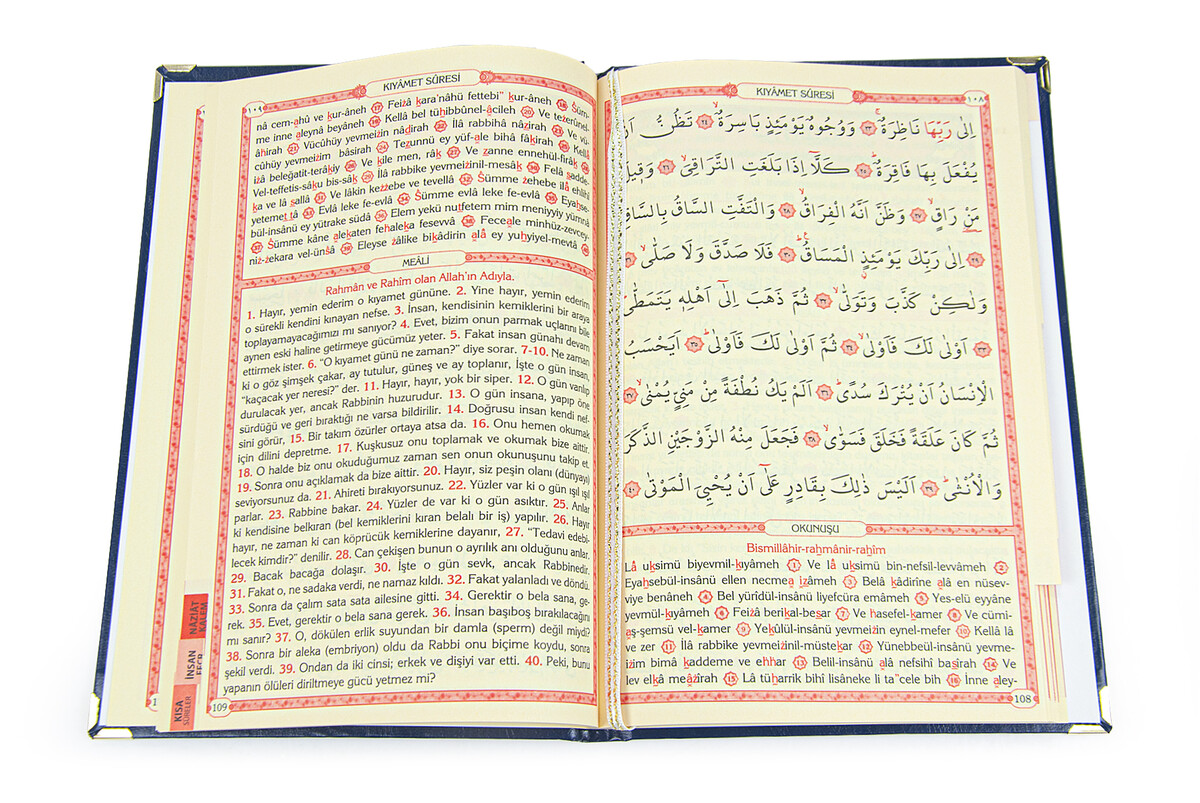 KIYÂMET SÛRESİ
١٠٨
اِلٰى رَبِّهَا نَاظِرَةٌۚ ﴿٢٣﴾ وَوُجُوهٌ يَوْمَئِذٍ بَاسِرَةٌۙ ﴿٢٤﴾ تَظُنُّ اَنْ
يُفْعَلَ بِهَا فَاقِرَةٌۜ ﴿٢٥﴾ كَلَّٓا اِذَا بَلَغَتِ التَّرَاقِيَۙ ﴿٢٦﴾ وَق۪يلَ
مَنْ رَاقٍۙ ﴿٢٧﴾ وَظَنَّ اَنَّهُ الْفِرَاقُۙ ﴿٢٨﴾ وَالْتَفَّتِ السَّاقُ بِالسَّاقِۙ
﴿٢٩﴾ اِلٰى رَبِّكَ يَوْمَئِذٍ الْمَسَاقُۜ ﴿٣٠﴾ فَلَا صَدَّقَ وَلَا صَلّٰىۙ ﴿٣١﴾
وَلٰكِنْ كَذَّبَ وَتَوَلّٰىۙ ﴿٣٢﴾ ثُمَّ ذَهَبَ اِلٰٓى اَهْلِه۪ يَتَمَطّٰىۜ
﴿٣٣﴾ اَوْلٰى لَكَ فَاَوْلٰىۙ ﴿٣٤﴾ ثُمَّ اَوْلٰى لَكَ فَاَوْلٰىۜ ﴿٣٥﴾ اَيَحْسَبُ
الْاِنْسَانُ اَنْ يُتْرَكَ سُدًىۜ ﴿٣٦﴾ اَلَمْ يَكُ نُطْفَةً مِنْ مَنِيٍّ يُمْنٰىۙ ﴿٣٧﴾
ثُمَّ كَانَ عَلَقَةً فَخَلَقَ فَسَوّٰىۙ ﴿٣٨﴾ فَجَعَلَ مِنْهُ الزَّوْجَيْنِ الذَّكَرَ
وَالْاُنْثٰىۜ ﴿٣٩﴾ اَلَيْسَ ذٰلِكَ بِقَادِرٍ عَلٰٓى اَنْ يُحْيِيَ الْمَوْتٰى ﴿٤٠﴾
OKUNUŞU
Bismillâhir-rahmânir-rahîm
Lâ uksimü biyevmil-kıyâmeh 1 Ve lâ uksimü bin-nefsil-levvâmeh 2
Eyahsebül-insânü ellen necmea izâmeh 3 Belâ kâdirîne alâ en nüsev-
viye benâneh 4 Bel yürîdül-insânü liyefcüra emâmeh 5 Yes-elü eyyâne
yevmül-kıyâmeh 6 Feizâ berikal-besar 7 Ve hasefel-kamer 8 Ve cümi-
aş-şemsü vel-kamer 9 Yekûlül-insânü yevmeizin eynel-mefer 10 Kellâ lâ
ve zer 11 İlâ rabbike yevmeizinil-müstekar 12 Yünebbeül-insânü yevme-
izim bimâ kaddeme ve ehhar 13 Belil-insânü alâ nefsihî basîrah 14 Ve
lev elkâ meâzîrah 15 Lâ tüharrik bihî lisâneke li ta"cele bih 16 İnne aley-
108
KIYÂMET SÛRESİ
١٠٩
nâ cem-ahû ve kur-âneh 17 Feizâ kara'nâhü fettebi" kur-âneh 18 Süm-
me inne aleynâ beyâneh 19 Kellâ bel tühibbûnel-âcileh 20 Ve tezerûnel-
âhirah 21 Vücûhüy yevmeizin nâdirah 22 İlâ rabbihâ nâzirah 23 Ve vü-
cûhüy yevmeizim bâsirah 24 Tezunnü ey yüf-ale bihâ fâkirah 25 Kellâ
izâ beleğatit-terâkıy 26 Ve kîle men, râk 27 Ve zanne ennehül-firâk 28
Vel-teffetis-sâku bis-sâk 29 İlâ rabbike yevmeizinil-mesâk 30 Felâ sadde-
ka ve lâ sallâ 31 Ve lâkin kezzebe ve tevellâ 32 Sümme zehebe ilâ ehlihî
yetemettâ 33 Evlâ leke fe-evlâ 34 Sümme evlâ leke fe-evlâ 35 Eyahse-
bül-insânü ey yütrake südâ 36 Elem yekü nutfetem mim meniyyiy yümnâ
37 Sümme kâne alekaten fehaleka fesevvâ 38 Feceale minhüz-zevcey-
niz-zekara vel-ünsâ 39 Eleyse zâlike bikâdirin alâ ey yuhyiyel-mevtâ 40
MEÂLİ
Rahmân ve Rahîm olan Allah'ın Adıyla.
1. Hayır, yemin ederim o kıyamet gününe. 2. Yine hayır, yemin ederim
o sürekli kendini kınayan nefse. 3. İnsan, kendisinin kemiklerini bir araya
toplayamayacağımızı mı sanıyor? 4. Evet, bizim onun parmak uçlarını bile
aynen eski haline getirmeye gücümüz yeter. 5. Fakat insan günahı devam
ettirmek ister. 6. "O kıyamet günü ne zaman?" diye sorar. 7-10. Ne zaman
ki o göz şimşek çakar, ay tutulur, güneş ve ay toplanır, İşte o gün insan,
"kaçacak yer neresi?" der. 11. Hayır, hayır, yok bir siper. 12. O gün varılıp
durulacak yer, ancak Rabbinin huzurudur. 13. O gün insana, yapıp öne
sürdüğü ve geri bıraktığı ne varsa bildirilir. 14. Doğrusu insan kendi nef-
sini görür, 15. Bir takım özürler ortaya atsa da. 16. Onu hemen okumak
için dilini depretme. 17. Kuşkusuz onu toplamak ve okumak bize aittir.
18. O halde biz onu okuduğumuz zaman sen onun okunuşunu takip et.
19. Sonra onu açıklamak da bize aittir. 20. Hayır, siz peşin olanı (dünyayı)
seviyorsunuz da. 21. Ahireti bırakıyorsunuz. 22. Yüzler var ki o gün ışıl ışıl
parlar. 23. Rabbine bakar. 24. Yüzler de var ki o gün asıktır. 25. Anlar
ki kendisine belkıran (bel kemiklerini kıran belalı bir iş) yapılır. 26. Hayır
hayır, ne zaman ki can köprücük kemiklerine dayanır, 27. "Tedavi edebi-
lecek kimdir?" denilir. 28. Can çekişen bunun o ayrılık anı olduğunu anlar.
29. Bacak bacağa dolaşır. 30. İşte o gün sevk, ancak Rabbinedir.
31. Fakat o, ne sadaka verdi, ne namaz kıldı. 32. Fakat yalanladı ve döndü.
33. Sonra da çalım sata sata ailesine gitti. 34. Gerektir o bela sana, ge-
rek. 35. Evet, gerektir o bela sana gerek. 36. İnsan başıboş bırakılacağını
mı sanır? 37. O, dökülen erlik suyundan bir damla (sperm) değil miydi?
38. Sonra bir aleka (embriyon) oldu da Rabbi onu biçime koydu, sonra
şekil verdi. 39. Ondan da iki cinsi; erkek ve dişiyi var etti. 40. Peki, bunu
yapanın ölüleri diriltmeye gücü yetmez mi?
109
NÂZİÂT
KALEM
İNSAN
FECR
KISA
SÛRELER